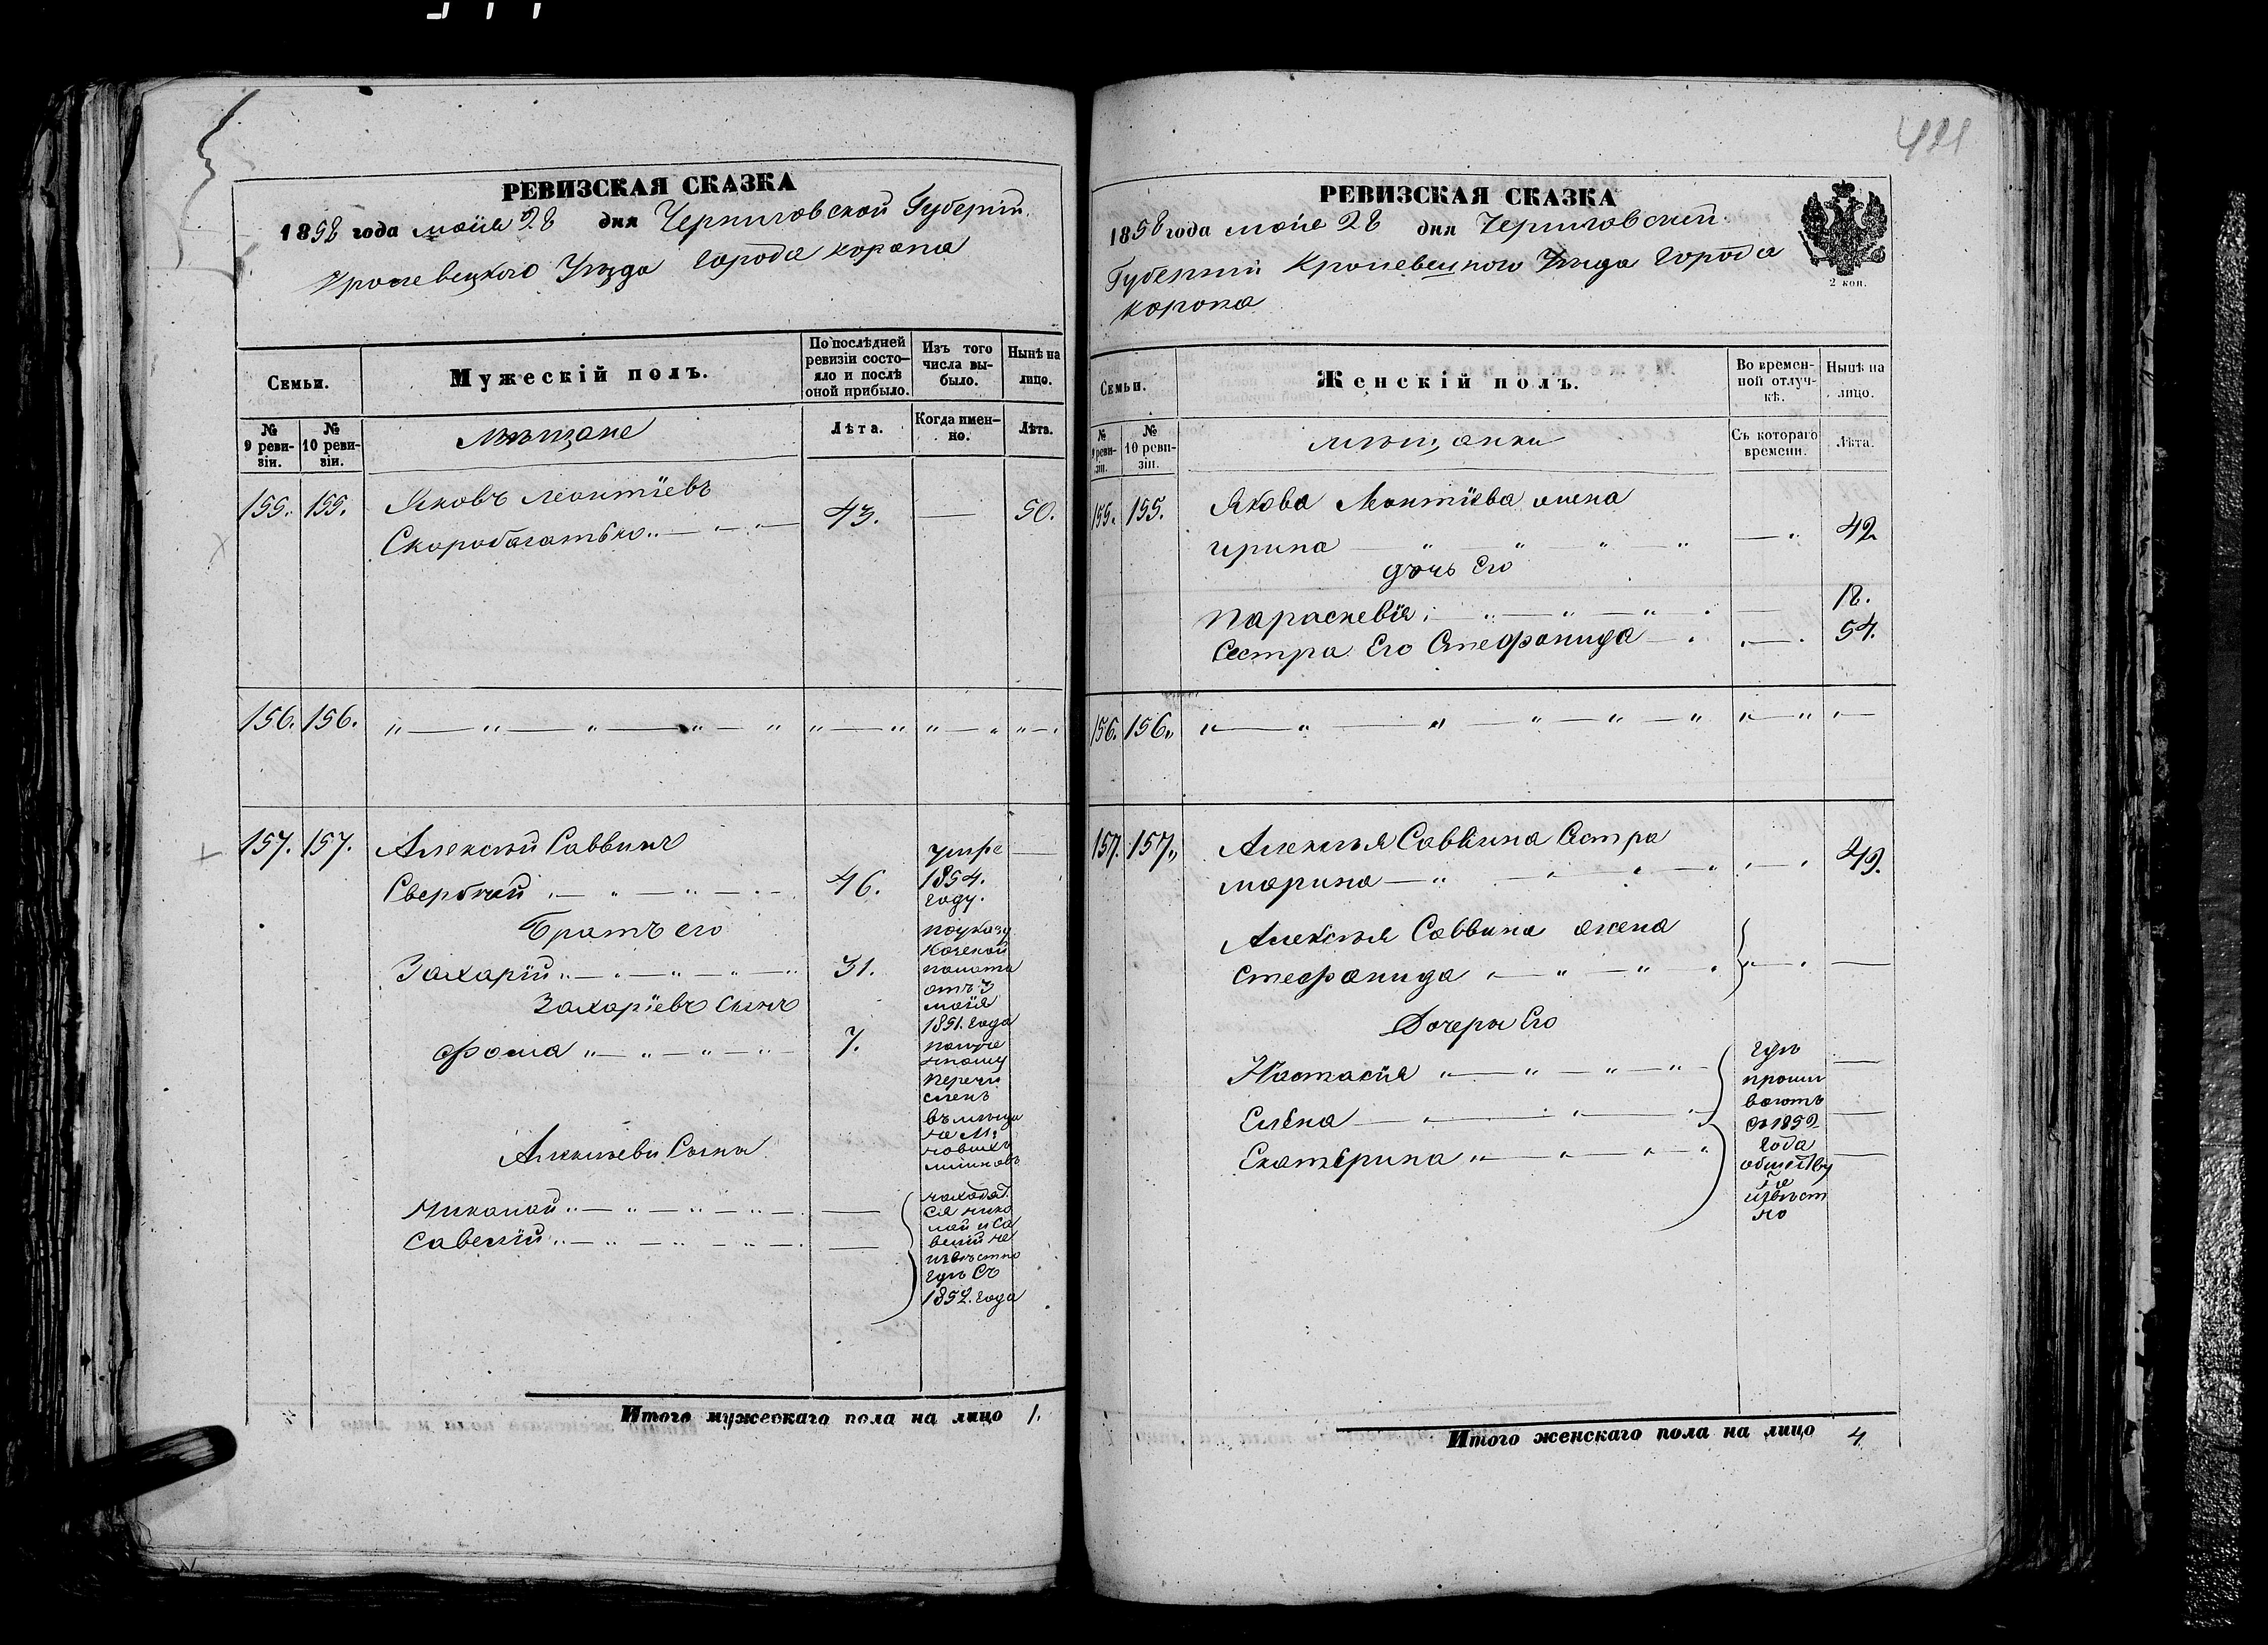 421
РЕВИЗСКАЯ СКАЗКА
1858 года маия 28 дня Черниговской Губернiи
Кролевецкого Уѣзда Города Коропа
Семьи.
Мужескій полъ.
По послѣдней ревизіи состо-
яло и послѣ
оной прибыло.
Изъ того
числа вы-
было.
Нынѣ на
лицо.
№
9 реви-
зіи.
№
10 реви-
зіи.
мѣщане
Лѣта.
Когда имен-
но.
Лѣта.
155. 155. Яковъ Леонтіевъ
Скоробагатько 43. — 50.
156. 156.
157. 157. Алексѣй Саввинъ
Свербѣй 46.
умре
1854.
году.
Братъ его
Захарій 31.
Захаріевъ Сынъ
Фома 7.
по указу
Казеной
палати
отъ 3
маія
1851. года
перечи
сленъ
Алексѣеви Сыны
Николай
Савелій
находят
ся Нико
лай и Са
велій не
извѣстно
гдѣ Съ
1852. года
Итого мужескаго пола на лицо 1.
РЕВИЗСКАЯ СКАЗКА
1858 года маіа 28 дня Черниговской
Губерніи Кролевецкого Уѣзда Города
Коропа
2 коп.
Семьи.
Женскій полъ.
Во времен-
ной отлуч-
кѣ.
Нынѣ на
лицо.
№
9 реви-
зіи.
№
10 реви-
зіи.
мѣщанки
Съ котораго
времени.
Лѣта.
155. 155. Якова Леонтіева жена
Ирина 42.
дочь Его
Параскевія 18.
Сестра Его Стефанида 54.
156. 156.
157. 157. Алексѣя Саввина Сестра
Марина 49.
Алексѣя Саввина жена
Стефанида
Дочери Его
Настасія
Елена
Екатерина
гдѣ
прожи
вають
съ 1852
года
обществу
не
извѣст
но
Итого женскаго пола на лицо 4